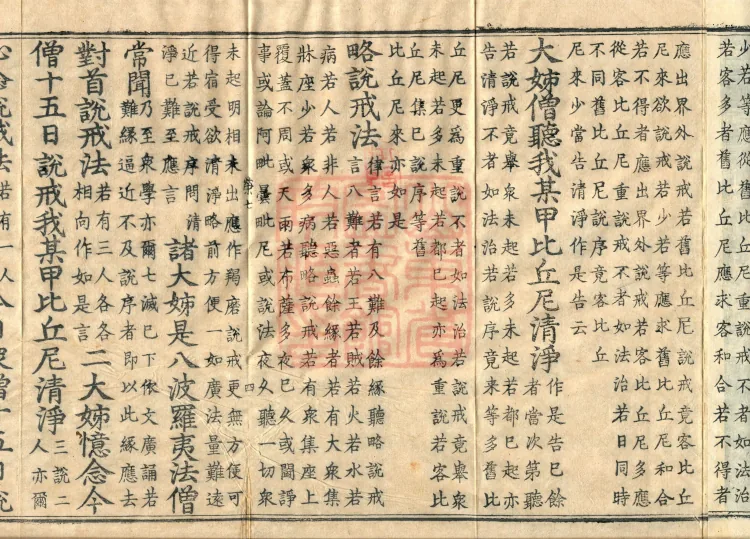 若客多者舊比丘尼應求客和合若不得者
應出界外說戒若舊比丘尼說戒竟客比丘
尼來欲說戒若少若等應求舊比丘尼和合
若不得者應出界外說戒若客比丘尼多應
從客比丘尼重說戒不者如法治若日同時
不同舊比丘尼說序竟客比丘
尼來少當告清淨作是告云
大姊僧聽我某甲比丘尼清淨
作是告已餘
者當次第聽
若說戒竟舉衆未起若多未起若都已起亦
告清淨不者如法治若說序竟來等多舊比
丘尼更爲重說不者如法治若說戒竟舉衆
未起若多未起若都已起亦爲重說若客比
丘尼集已說序等舊
比丘尼來亦如是
略說戒法
律言若有八難及餘緣聽略說戒
言八難者若王若賊若火若水若
病若人若非人若惡蟲餘緣者若有大衆集
牀座少若衆多病聽略說戒若有衆集座上
覆蓋不周或天雨若布薩多夜已久或鬬諍
事或論阿毗曇毗尼或說法夜久聽一切衆
第七
四
未起明相未出應作羯磨說戒更無方便可
得宿受欲清淨略前方便一如廣法量難遠
近若說戒序問清
淨已難至應言
諸大姊是八波羅夷法僧
常聞
乃至衆學亦爾七滅已下依文廣誦若
難緣逼近不及說序者即以此緣應去
對首說戒法
若有三人各各
相向作如是言
二大姊憶念今
僧十五日說戒我某甲比丘尼清淨
三說二
人亦爾